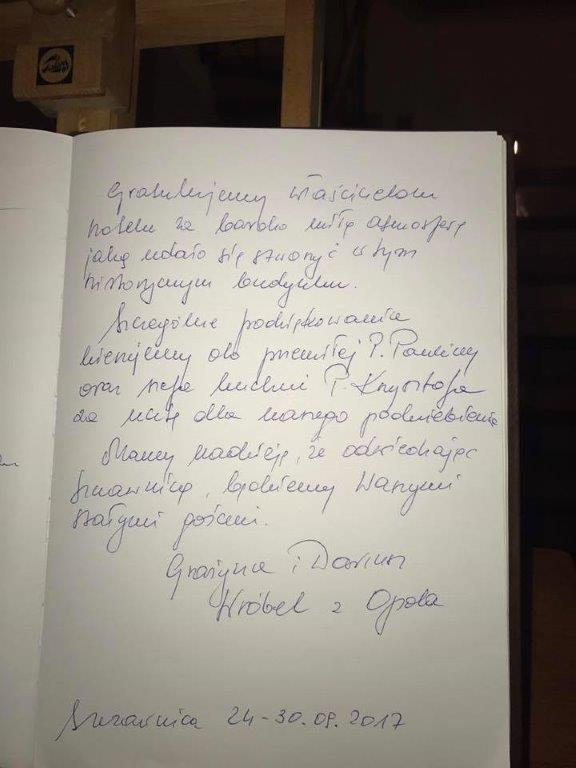 Gratulujemy właścicielom
hotelu za bardzo miłą atmosferę
jaką udało się stworzyć w tym
historycznym budynku.
Szczególne podziękowania
kierujemy do przemiłej P. Pauliny
oraz szefa kuchni P. Krzysztofa
za ucztę dla naszego podniebienia
Mamy nadzieję, że odwiedzając
Szczawnicę, będziemy Waszymi
stałymi gośćmi.
Grażyna i Dariusz
Wróbel z Opola
Szczawnica 24-30.09.2017